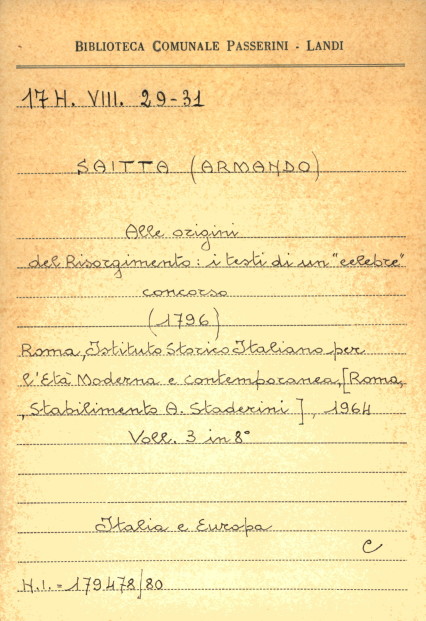 BIBLIOTECA COMUNALE PASSERINI - LANDI
17 H. VIII. 29-31
SAITTA (ARMANDO)
Alle origini
del Risorgimento: i testi di un "celebre"
concorso
(1796)
Roma, Istituto Storico Italiano per
l'Età Moderna e contemporanea, [Roma,
Stabilimento A. Staderini], 1964
Voll. 3 in 8°
Italia e Europa
C
N.I. = 179478/80